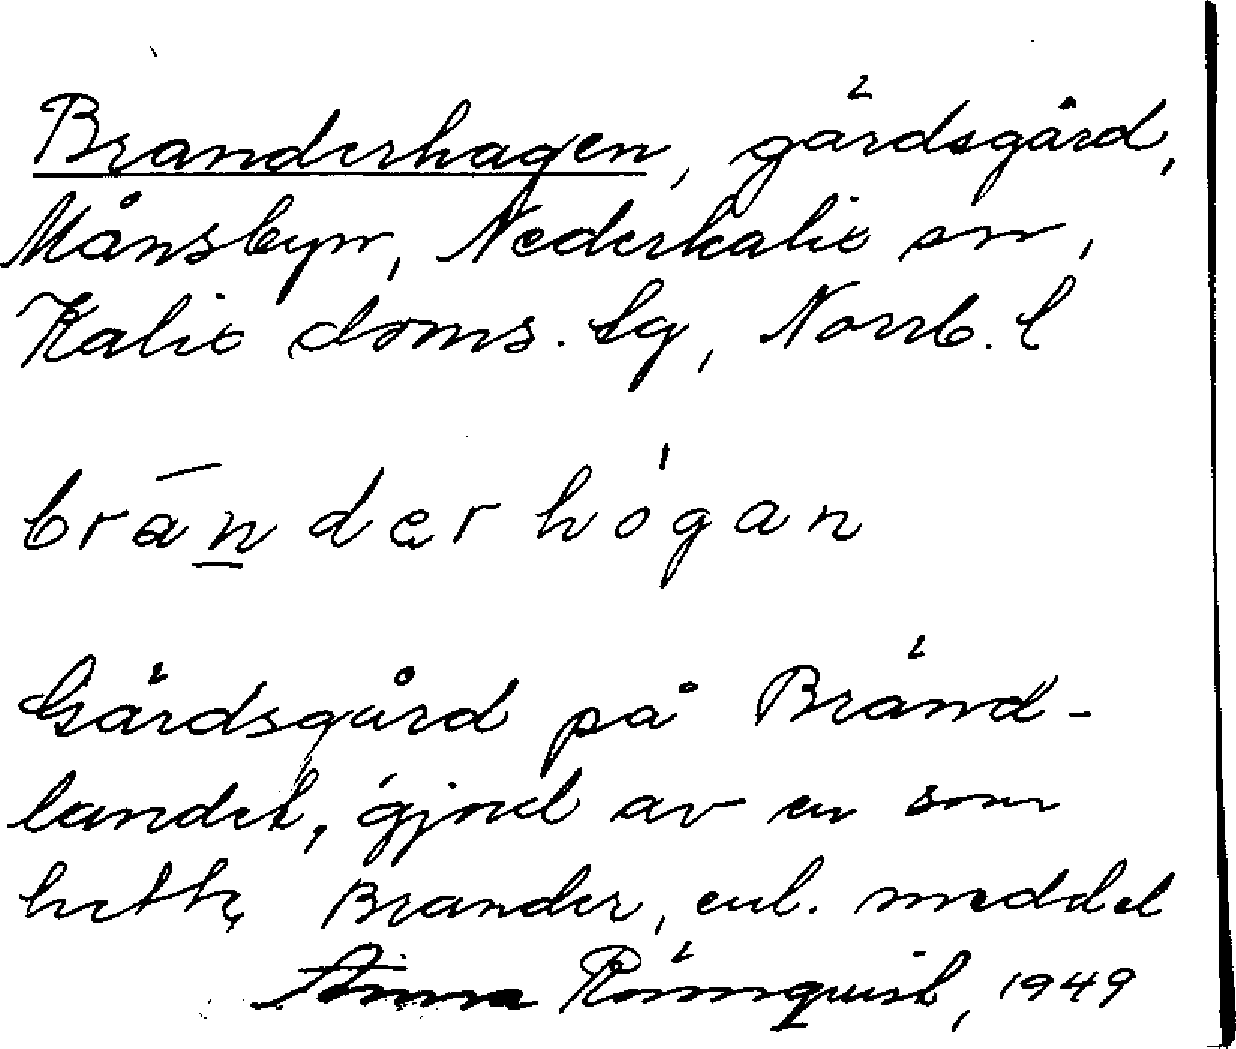 Branderhagen, gärdsgård,
Månsbyn, Nederkalix sn,
Kalix doms. lg, Norrb. l
brander hógan
Gärdsgård på Bränd-
landet, gjord av en som
hette Brander, enl. meddel
Anna Rönnquist, 1949